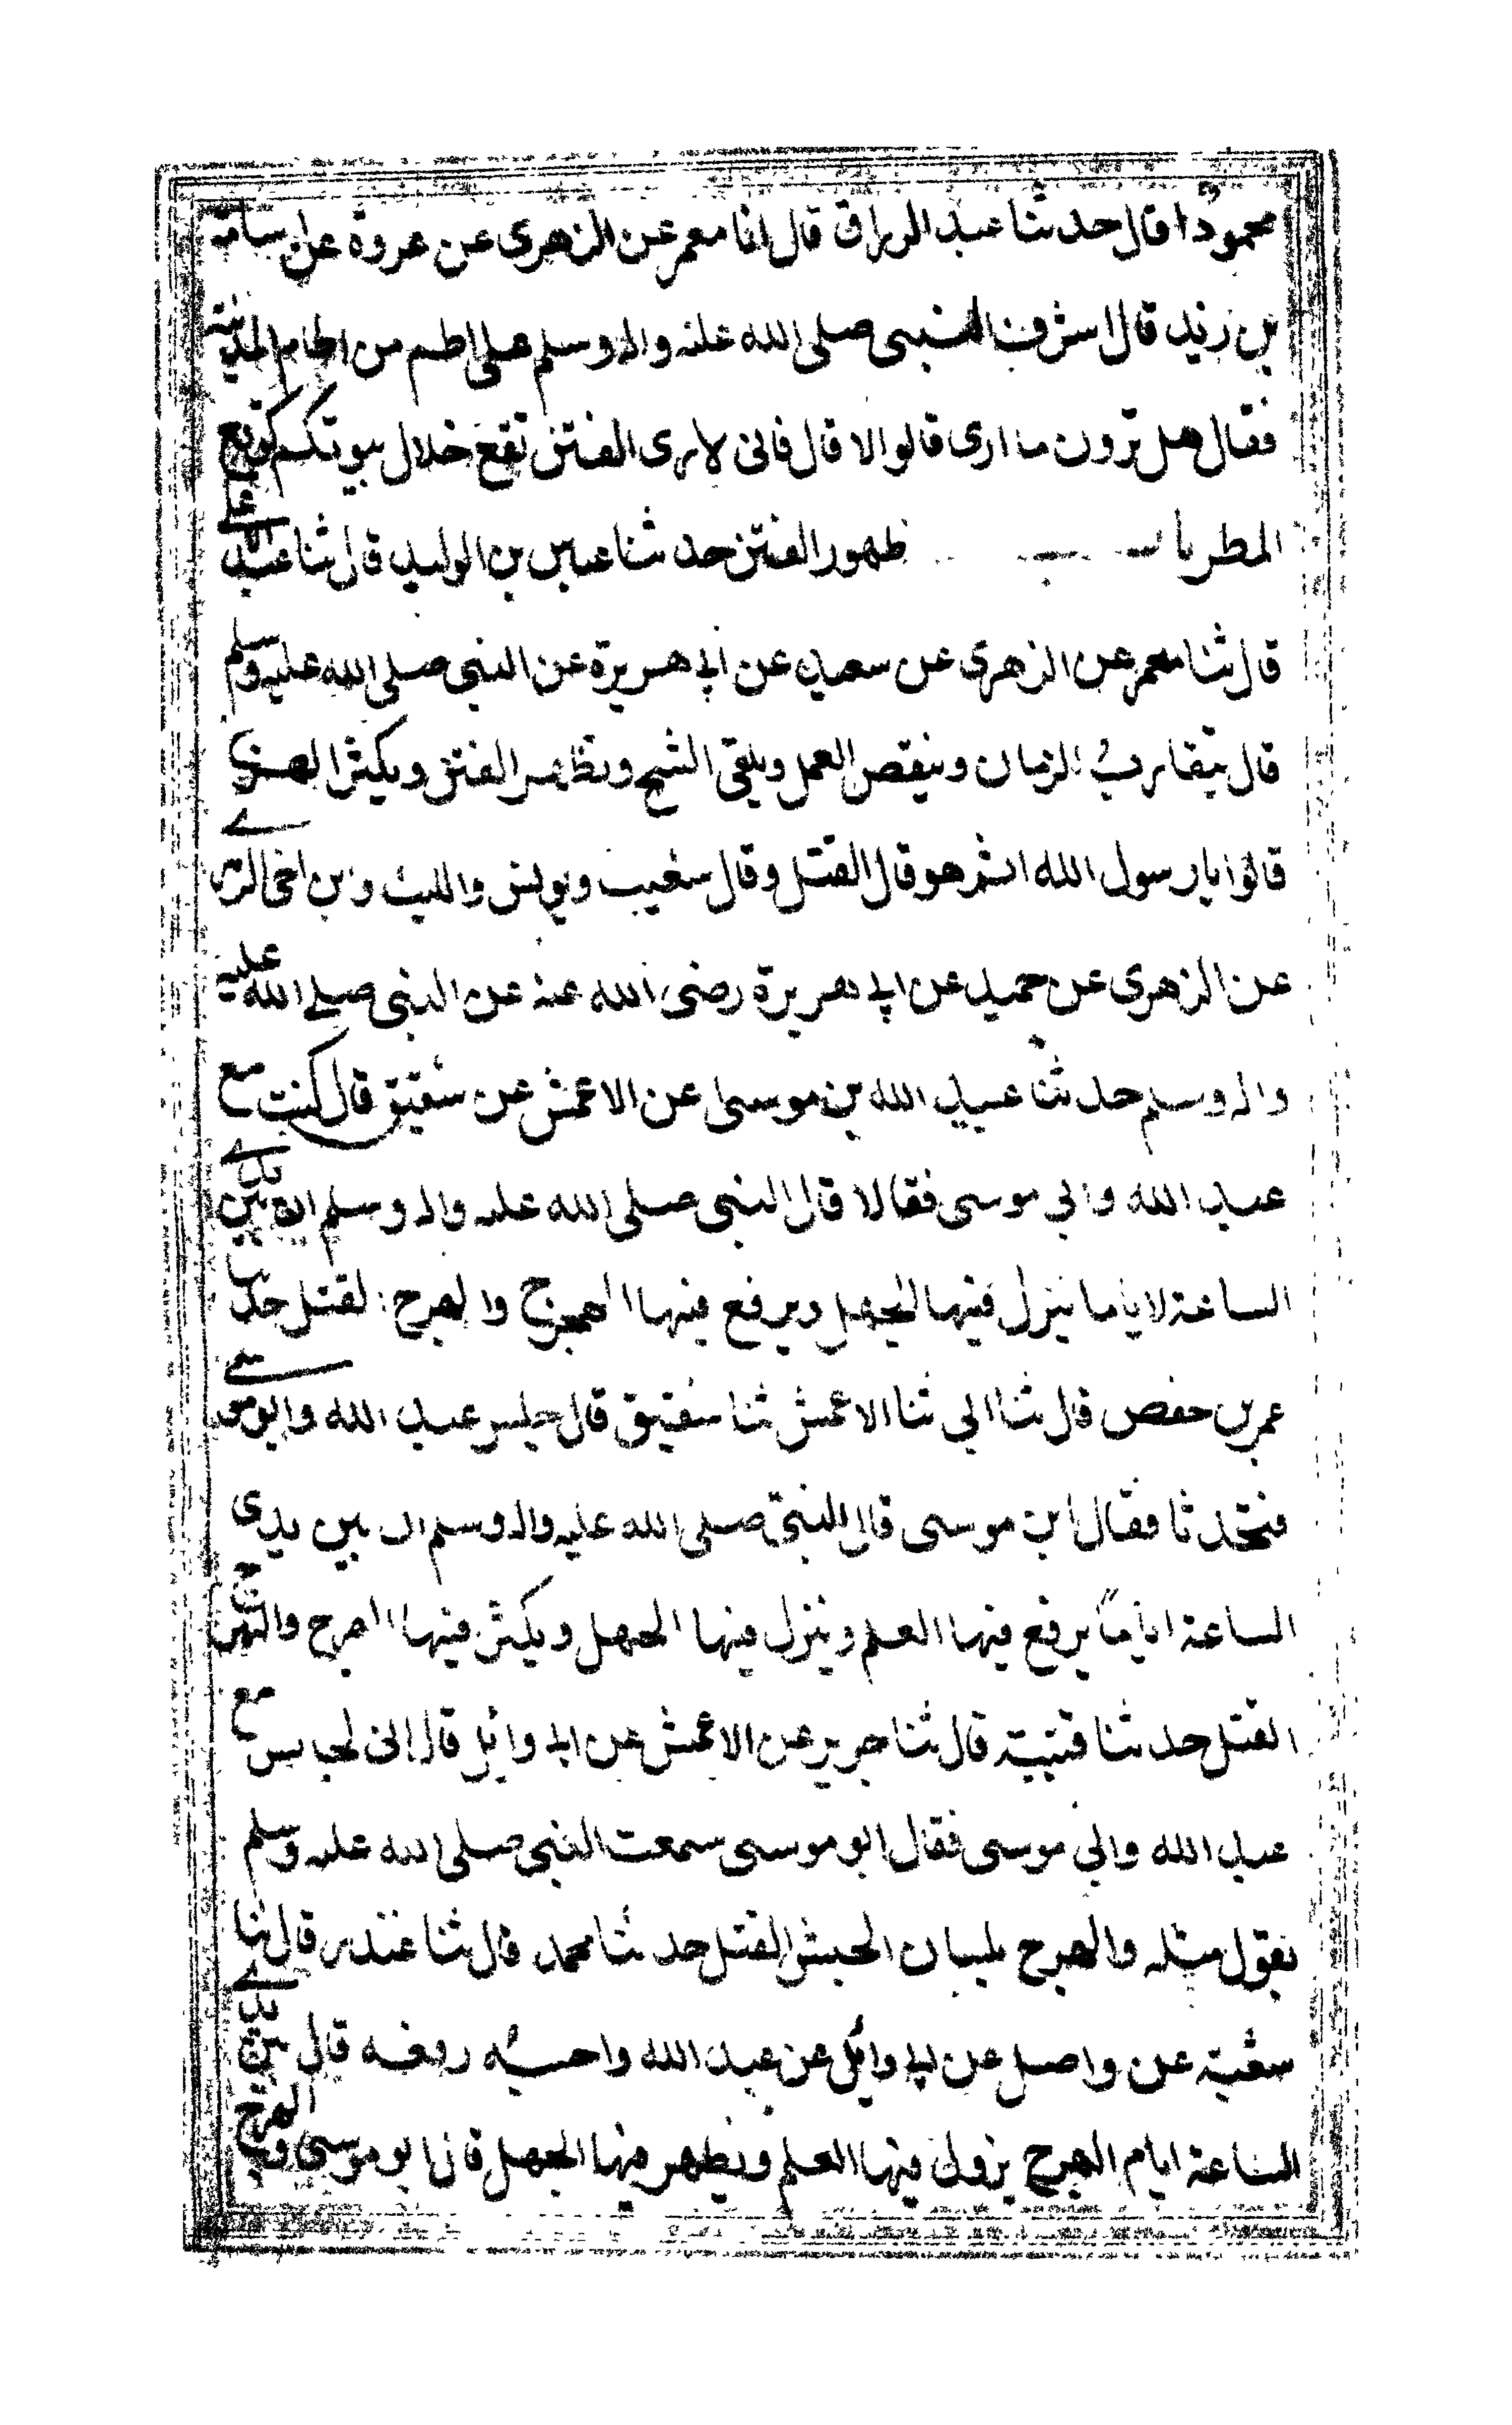 محمود قال حدثنا عبد الرزاق قال انا معمر عن الزهرى عن عروة عن اسامة
بن زيد قال اشرف النبى صلى الله عليه واله وسلم على اطم من اطام المدينة
فقال هل ترون ما ارى قالوا لا قال فانى لارى الفتن تقع خلال بيوتكم كوقع
المطر باب ظهور الفتن حدثنا عياش بن الوليد قال ثنا عبد الاعلى
قال ثنا معمر عن الزهرى عن سعيد عن ابى هريرة عن النبى صلى الله عليه وسلم
قال يتقارب الزمان وينقص العمل ويلقى الشح وتظهر الفتن ويكثر الهرج
قالوا يا رسول الله ايم هو قال القتل وقال شعيب ويونس والليث وابن اخى الزهرى
عن الزهرى عن حميد عن ابى هريرة رضى الله عنه عن النبى صلى الله عليه
واله وسلم حدثنا عبيد الله بن موسى عن الاعمش عن شقيق قال كنت مع
عبد الله وابى موسى فقالا قال النبى صلى الله عليه واله وسلم ان بين يدى
الساعة لاياما ينزل فيها الجهل ويرفع فيها الهرج والهرج القتل حدثنا
عمر بن حفص قال ثنا ابى ثنا الاعمش ثنا شقيق قال جلس عبد الله وابو موسى
فتحدثا فقال ابن موسى قال النبى صلى الله عليه واله وسلم ان بين يدى
الساعة اياما يرفع فيها العلم وينزل فيها الجهل ويكثر فيها الهرج والهرج
القتل حدثنا قتيبة قال ثنا جرير عن الاعمش عن ابى وائل قال انى لجالس مع
عبد الله وابي موسى فقال ابو موسى سمعت النبى صلى الله عليه وسلم
يقول مثله والهرج بلسان الحبش القتل حدثنا محمد قال ثنا غندر قال ثنا
شعبة عن واصل عن ابى وائل عن عبد الله واحسبه رفعه قال بين يدى
الساعة ايام الهرج يزول فيها العلم ويظهر فيها الجهل قال ابو موسى والهرج